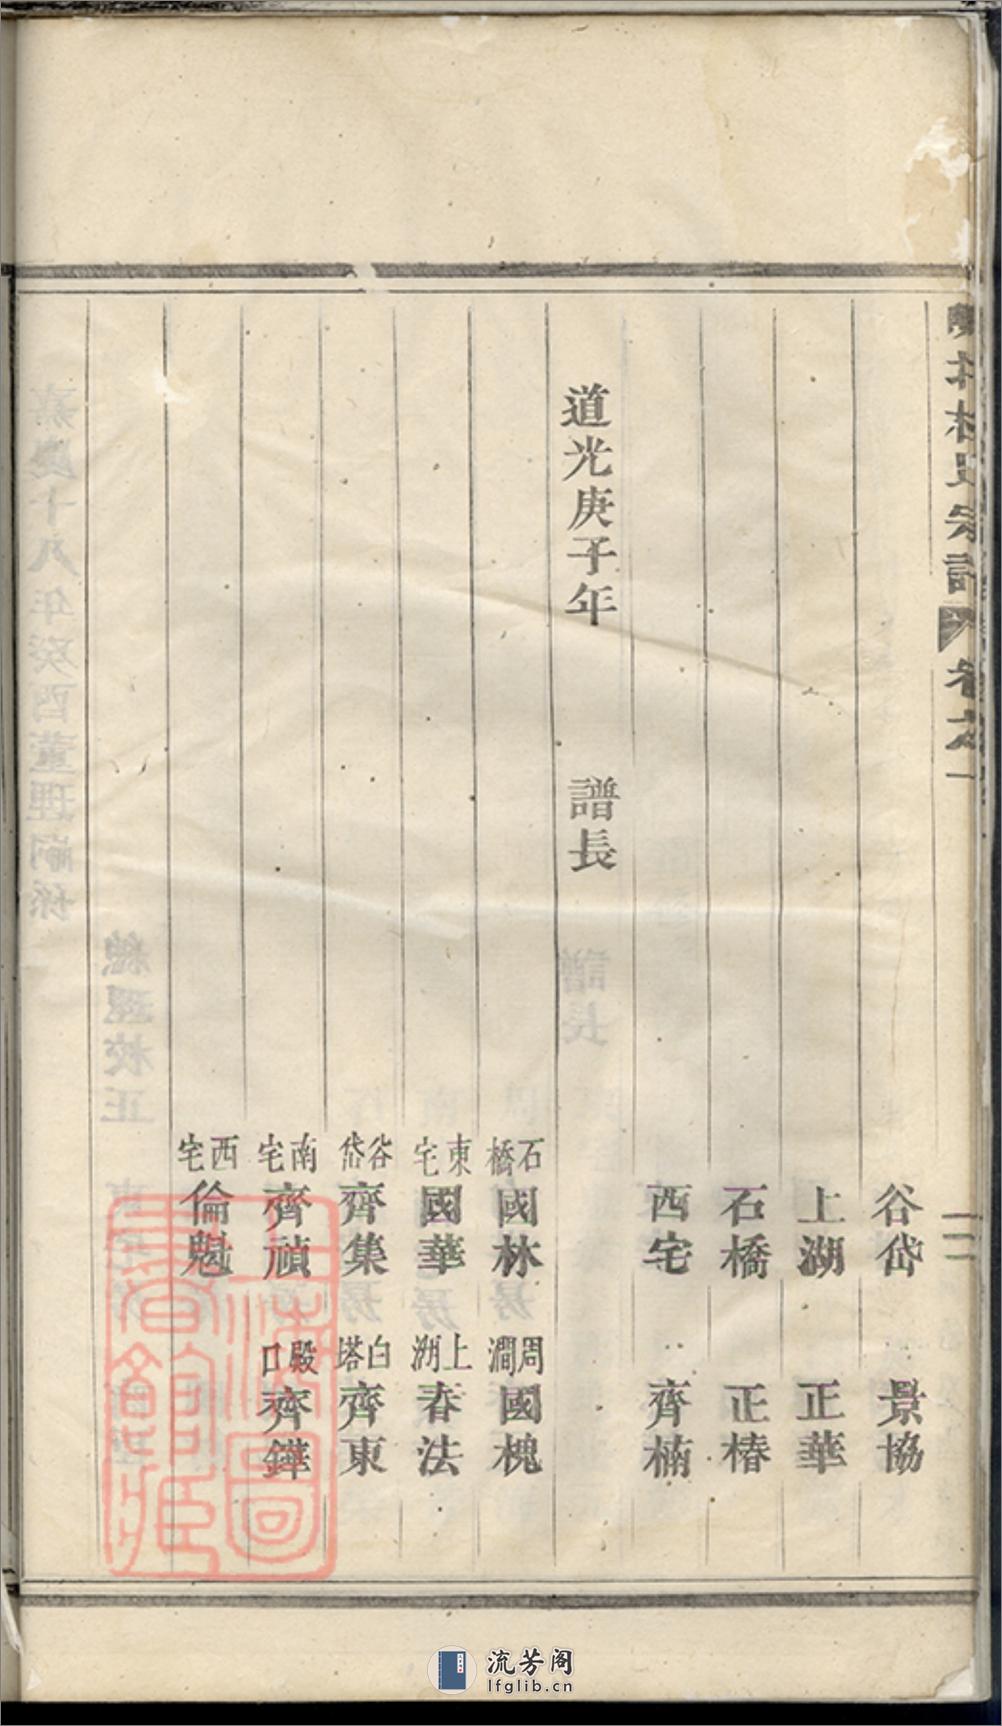 宗譜
卷之一
谷岱 景協
上湖 正華
石橋 正椿
西宅 齊楠
道光庚子年 譜長
石橋 國林 周澗 國槐
東宅 國華 上湖 春法
谷岱 齊集 白塔 齊東
南宅 齊禎 殿口 齊鏵
西宅 倫魁
流芳阁
lfglib.cn